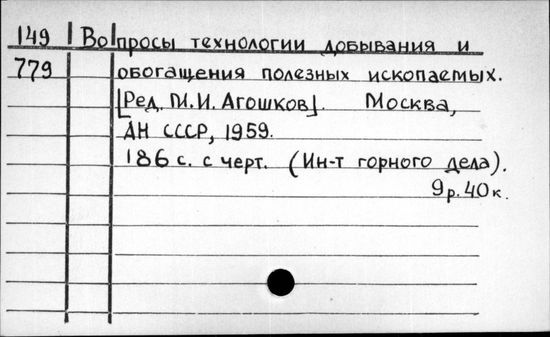 149 Вопросы технологии добывания и
779 обогащения полезных ископаемых.
[Ред. М.И. Агошков]. Москва,
АН СССР, 1959.
186 с. с черт. (Ин-т горного дела).
9р.40к.